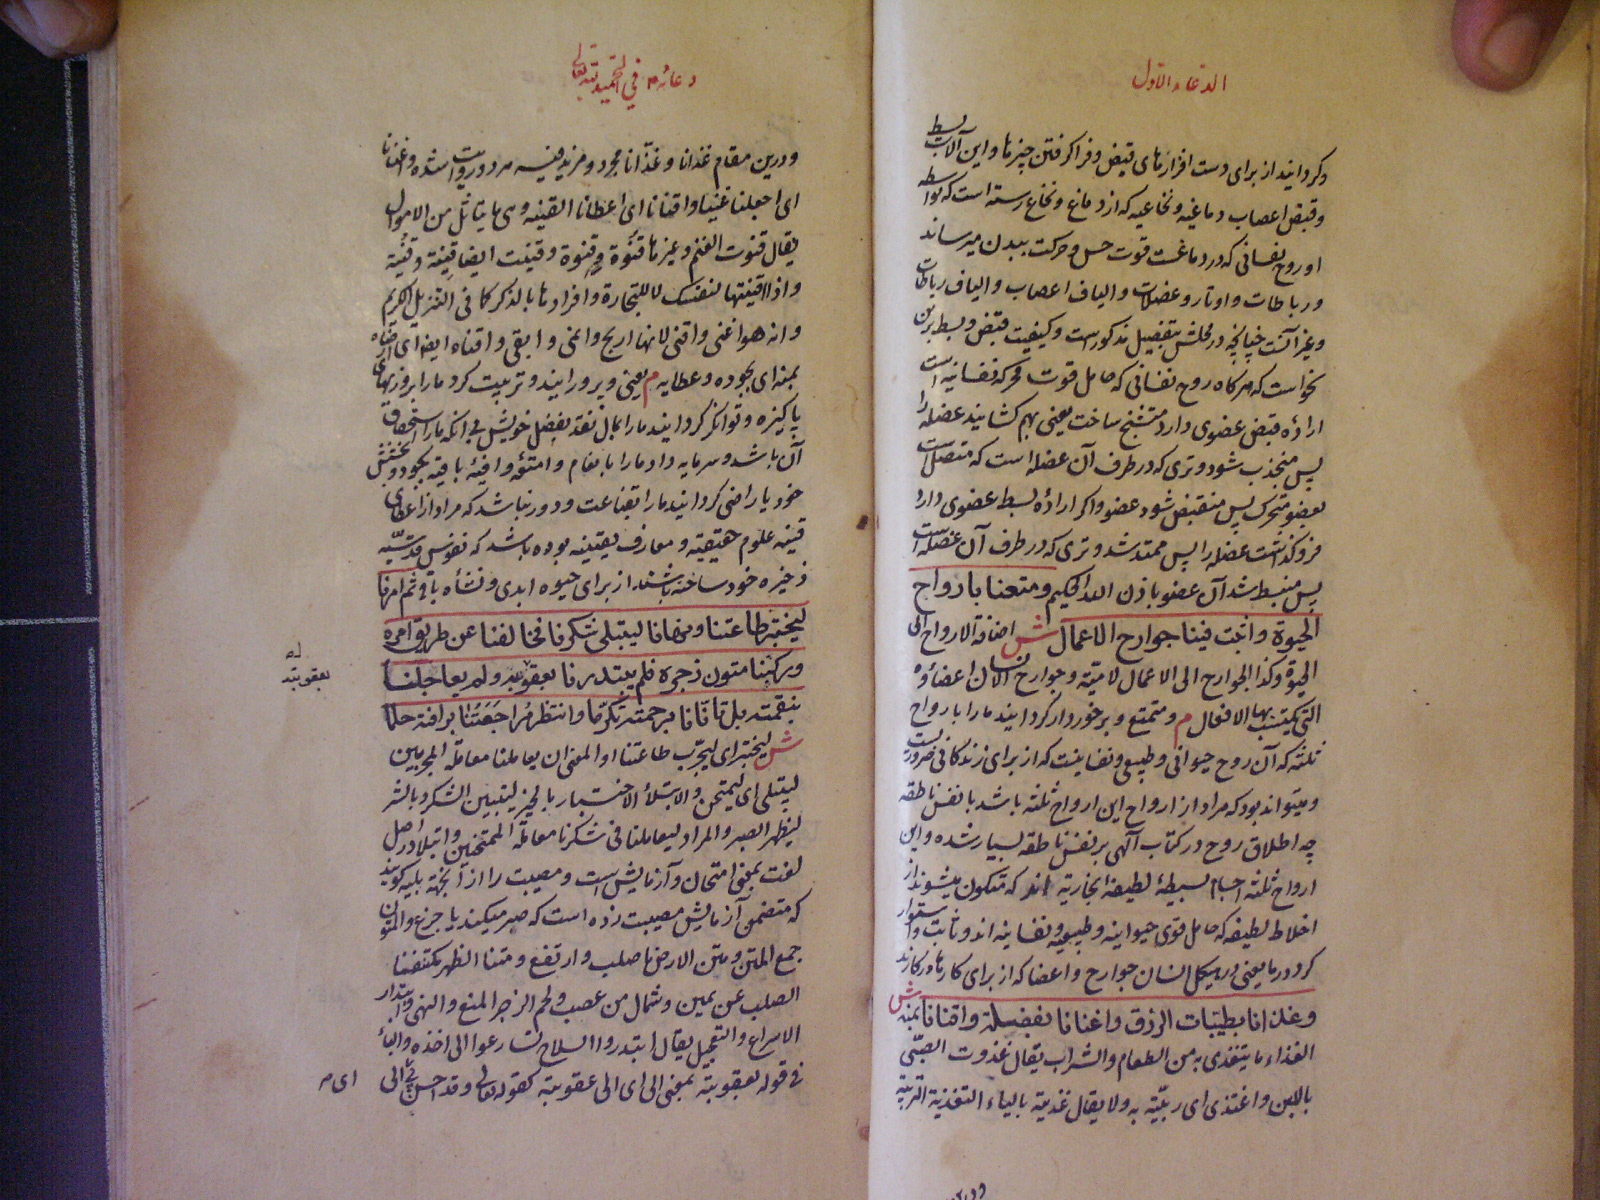 الدعاء الاول
وکردانید از برای دست افزارهای قبض وفرا کرفتن چیزها واین آلات بسط
وقبض اعصاب دماغیه ونخاعیه که از دماغ ونخاع رسته است که بواسطه
او روح نفسانی که در دماغست قوت حس وحرکت ببدن میرساند
ورباطات واوتار وعضلات والیاف اعصاب والیاف رباطات
وغیر آنست چنانچه در محلش بتفصیل مذکور است وکیفیت قبض وبسط برین
نحو است که هرکاه روح نفسانی که حامل قوت محرکه نفسانیه است
اراده قبض عضوی دارد متشنج ساخت یعنی بهم کشانید عضله را
پس منجذب شود وتری که در طرف آن عضله است که متصل است
بعضو متحرک پس منقبض شود عضو واکر اراده بسط عضوی دارد
فروکذاشت عضله را پس ممتد شد وتری که در طرف آن عضله است
پس منبسط شد آن عضو باذن الله الحکیم ومتعنا بارواح
الحیوة واثبت فینا جوارح الاعمال ش اضافة الارواح الی
الحیوة وکذا الجوارح الی الاعمال لامیّة وجوارح الانسان اعضاؤه
التی یکتسب بها الافعال م ومتمتع وبرخوردار کردانید مارا بارواح
ثلثه که آن روح حیوانی وطبیعی ونفسانیست که از برای زندکانی ضرورت است
ومیتواند بود که مراد از ارواح این ارواح ثلثه باشد با نفس ناطقه
چه اطلاق روح در کتاب آلهی بر نفس ناطقه بسیار شده واین
ارواح ثلثه اجسام بسیطهٔ لطیفهٔ بخاریه اند که متکون میشوند از
اخلاط لطیفه که حامل قوی حیوانیه وطبیعیه ونفسانیه اند وثابت واستوار
کرد در ما یعنی در هیکل انسان جوارح واعضا که از برای کارها در کارند
وغذانا بطیبات الرزق واغنانا بفضله واقنانا بمنه ش
الغذاء ما یتغذی به من الطعام والشراب یقال غذوت الصبّی
باللبن واغتذی ای ربّیته به ولا یقال غذیته بالیاء التغذیة التربیة
دعائه م فی التحمید لله تعالی
ودرین مقام غذانا وغذّانا مجرد ومزید فیه هر دو روایت شده واغنانا
ای اجعلنا غنیا واقنانا ای اعطانا القنیه وهی ما یتأثل من الاموال
یقال قنوت الغنم وغیرها قنُوة وقِنوة وقنیت ایضا قِنیة وقُنیة
واذا اقنیتها لنفسک لا للتجارة وافرادها بالذکر کما فی التنزیل الکریم
وانه هو اغنی واقنی لانها اربح وانمی وابقی واقناه ایضا ای ارضاه
بمنه ای بجوده وعطایه م یعنی وپرورانید وتربیت کرد مارا بروزیهای
پاکیزه وتوانکر کردانید مارا بمال نقد بفضل خویش بی آنکه مارا استحقاق
آن باشد وسرمایه داد مارا بانعام وامتعهٔ وافیهٔ باقیه بجود وبخشش
خود یا راضی کردانید مارا بقناعت ودور نباشد که مراد از اعطای
قنیه علوم حقیقیّه ومعارف یقینیه بوده باشد که نفوس قدسّیه
ذخیره خود ساخته باشند از برای حیوه ابدی ونشأه باقی ثم امرنا
لیختبر طاعتنا ونهانا لیبتلی شکرنا فخالفنا عن طریق امره
ورکبنا متون زجره فلم یبتدرنا بعقوبته ولم یعاجلنا
بنقمته بل تأنّانا برحمته تکرّما وانتظر مُراجَعَتَنا برافته حلما
ش لیختبر ای لیجرّب طاعتنا او المعنی ان یعاملنا معاملة المجربین
لیبتلی ای لیمتحن والابتلأ الاختبار بالخیر لیتبین الشکر وبالشر
لیظهر الصبر والمراد لیعاملنا فی شکرنا معاملة الممتحنین وابتلا در اصل
لغت بمعنی امتحان وآزمایش است ومصیبت را از آنجهة بلیه کویند
که متضمن آزمایش مصیبت زده است که صبر میکند یا جزع والمتون
جمع المتن ومتن الارض ما صلب وارتفع ومتنا الظهر مکتنفا
الصلب عن یمین وشمال من عصب ولحم الزجر المنع والنهی وابتدار
الاسراع والتعجیل یقال ابتدروا السلاح تسارعوا الی اخذه والباء
فی قوله بعقوبته بمعنی الی ای الی عقوبته کقوله تعالی وقد احسن بی الی
له
بعقوبته
ای م